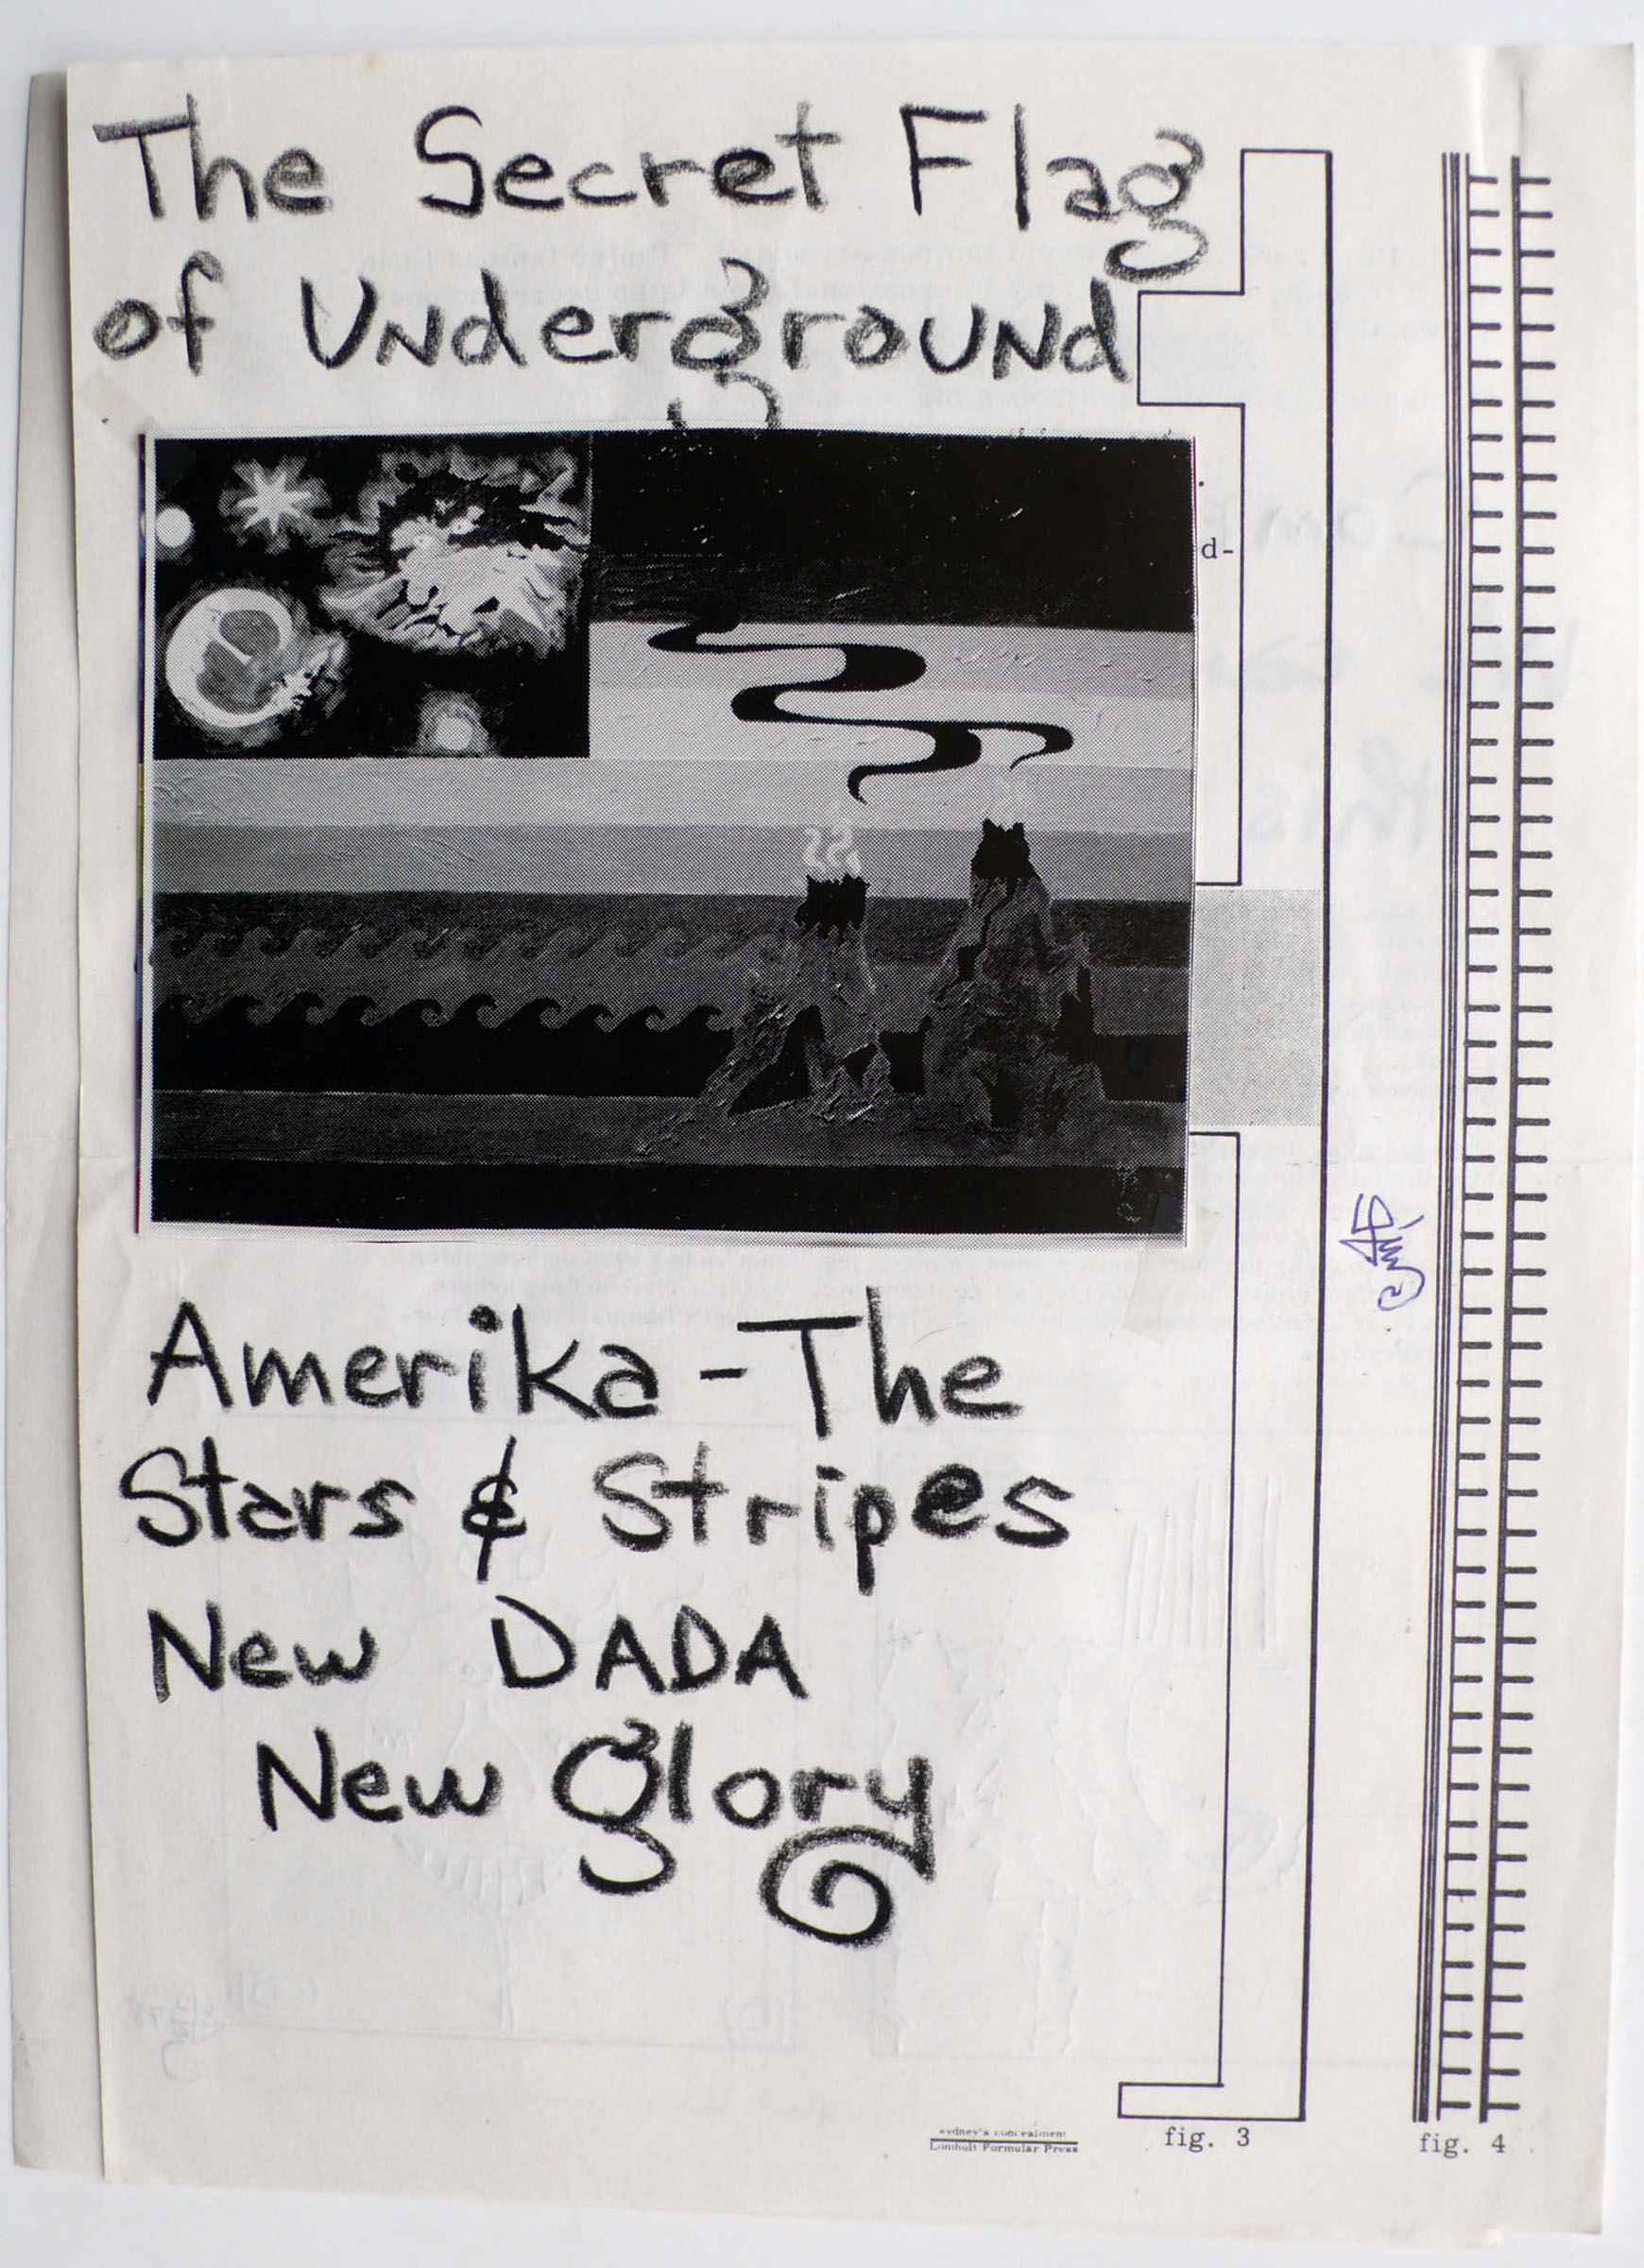 The Secret Flag
of Underground
d-
Amerika - The
Stars & Stripes
New DADA
New Glory
sydney's concealment
Lomholt Formular Press
fig. 3
fig. 4